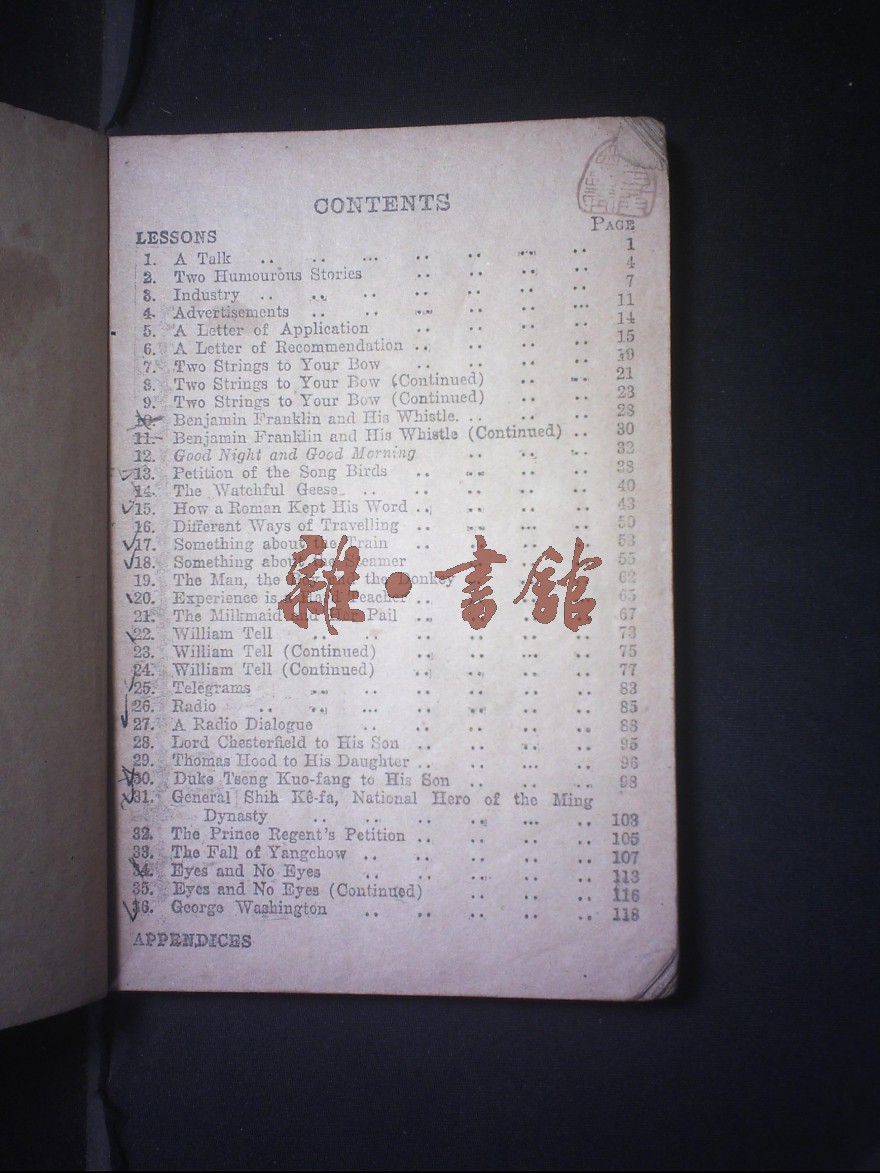 CONTENTS
LESSONS PAGE
1. A Talk .. .. ... .. .. ... .. 1
2. Two Humourous Stories .. .. .. .. 4
3. Industry .. .. .. .. .. .. .. 7
4. Advertisements .. .. ... .. .. ... 11
5. A Letter of Application .. .. .. .. 14
6. A Letter of Recommendation .. .. .. .. 15
7. Two Strings to Your Bow .. .. .. .. 19
8. Two Strings to Your Bow (Continued) .. ... 21
9. Two Strings to Your Bow (Continued) .. .. 23
10. Benjamin Franklin and His Whistle. .. .. .. 28
11. Benjamin Franklin and His Whistle (Continued) .. 30
12. Good Night and Good Morning .. .. .. 32
13. Petition of the Song Birds .. ... .. .. 38
14. The Watchful Geese .. .. .. .. .. 40
15. How a Roman Kept His Word .. .. .. .. 43
16. Different Ways of Travelling .. .. ... .. 50
17. Something about the Train .. .. .. .. 53
18. Something about the Steamer .. .. .. 55
19. The Man, the Boy and the Donkey .. .. .. 62
20. Experience is a Hard Teacher .. .. .. .. 65
21. The Milkmaid and Her Pail .. .. .. .. 67
22. William Tell .. .. .. .. .. .. 73
23. William Tell (Continued) .. .. ... .. 75
24. William Tell (Continued) .. .. .. .. 77
25. Telegrams .. .. .. .. .. .. 83
26. Radio .. .. ... .. .. .. .. 85
27. A Radio Dialogue .. .. .. .. .. 88
28. Lord Chesterfield to His Son .. .. .. .. 95
29. Thomas Hood to His Daughter .. .. ... .. 96
30. Duke Tseng Kuo-fang to His Son .. .. .. 98
31. General Shih Kê-fa, National Hero of the Ming
Dynasty .. .. .. .. ... .. 103
32. The Prince Regent's Petition .. .. .. .. 105
33. The Fall of Yangchow .. .. .. .. .. 107
34. Eyes and No Eyes .. .. .. .. .. 113
35. Eyes and No Eyes (Continued) .. .. .. 116
36. George Washington .. .. .. .. .. 118
APPENDICES
雜·書館